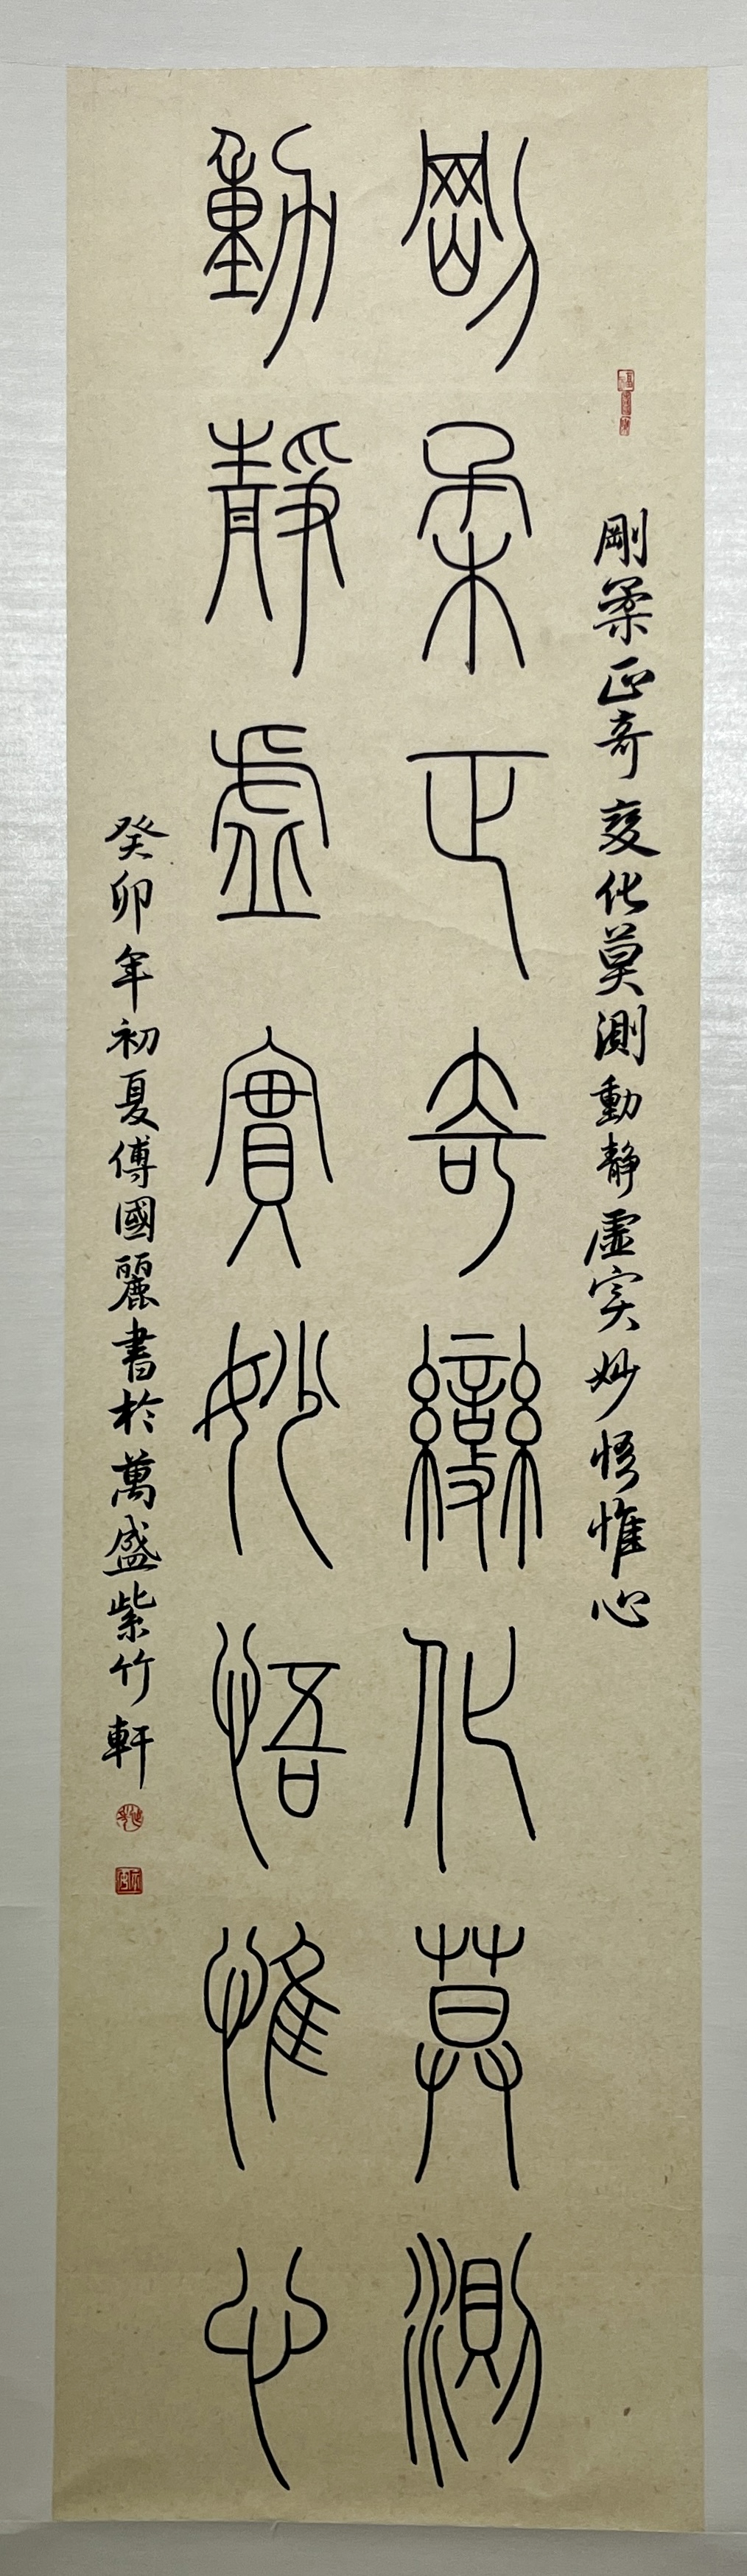 剛柔正奇變化莫測動靜虛実妙悟惟心
剛柔正奇變化莫測
動靜虛實妙悟惟心
癸卯年初夏傅國麗書於萬盛紫竹軒